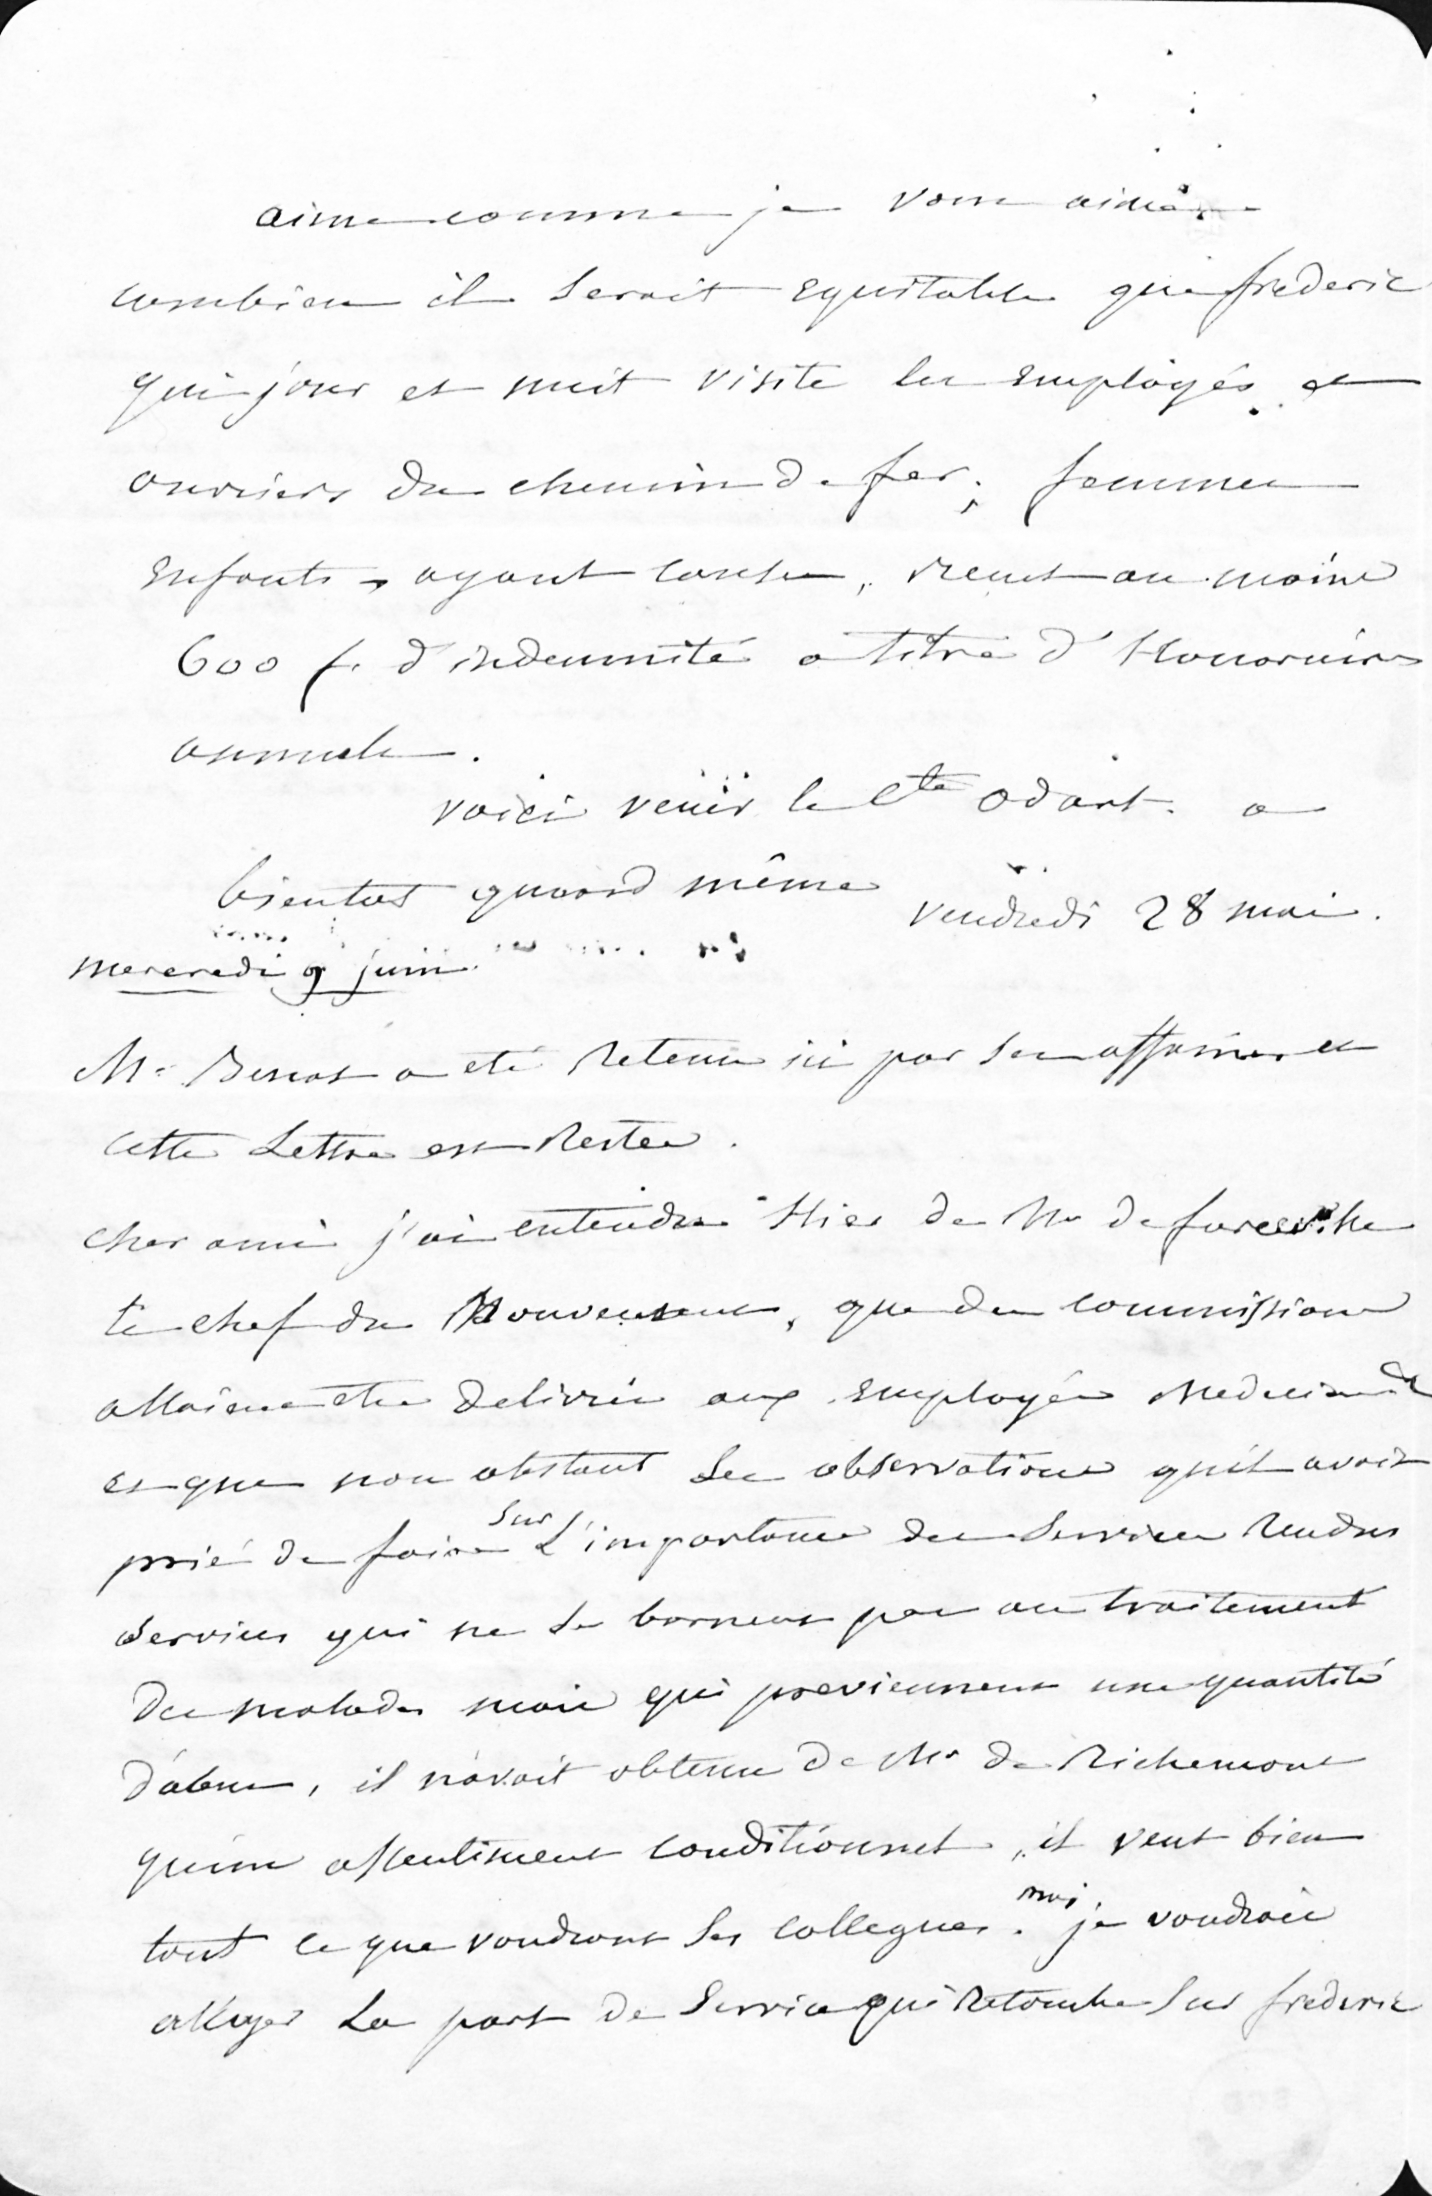 aime comme je vous aime
combien il seroit equitable que frederic
qui jour et nuit visite les employés et
ouvriers du chemin de fer, femmes
enfants ayant cause, recut au moins
600 f. d'indemnité a titre d'Honoraires
annuels.
voici venir le Cte odart. a
bientot quand même
vendredi 28 mai.
mercredi 9 juin.
Mr a eté retenu ici par ses affaires et
cette Lettre est restée.
cher ami j'ai entendu Hier de Mr de farceville
le chef du Mouvement, que des commissions
alloient etre delivrées aux employés Medecins
et que non obstant les observations qu'il avoit
prié de faire sur L'importance des services rendus
services qui ne se bornent pas au traitement
des malades mais qui previennent une quantité
d'abus, il n'avoit obtenu de Mr de Richemont
qu'un assentiment conditionnel, il veut bien
tout ce que voudront ses collegues. moi je voudrois
alleger La part de service qui retombe sur frederic